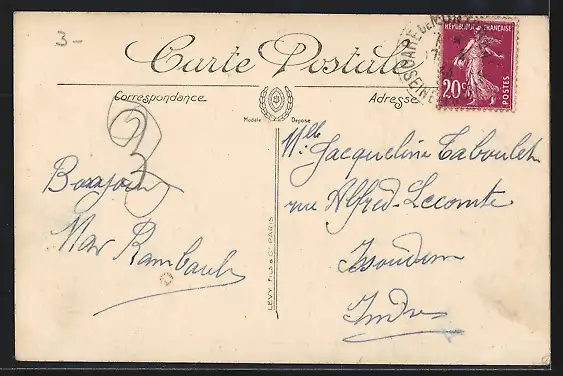 3-
Carte Postale
Correspondance
Adresse
Modèle Déposé
RÉPUBLIQUE FRANÇAISE
20c
POSTES
GARE DE
SEINE
3
Bonjour
Max Rambault
LÉVY FILS & Cie PARIS
Mlle Jacqueline Taboulet
rue Alfred-Lecomte
Issoudun
Indre